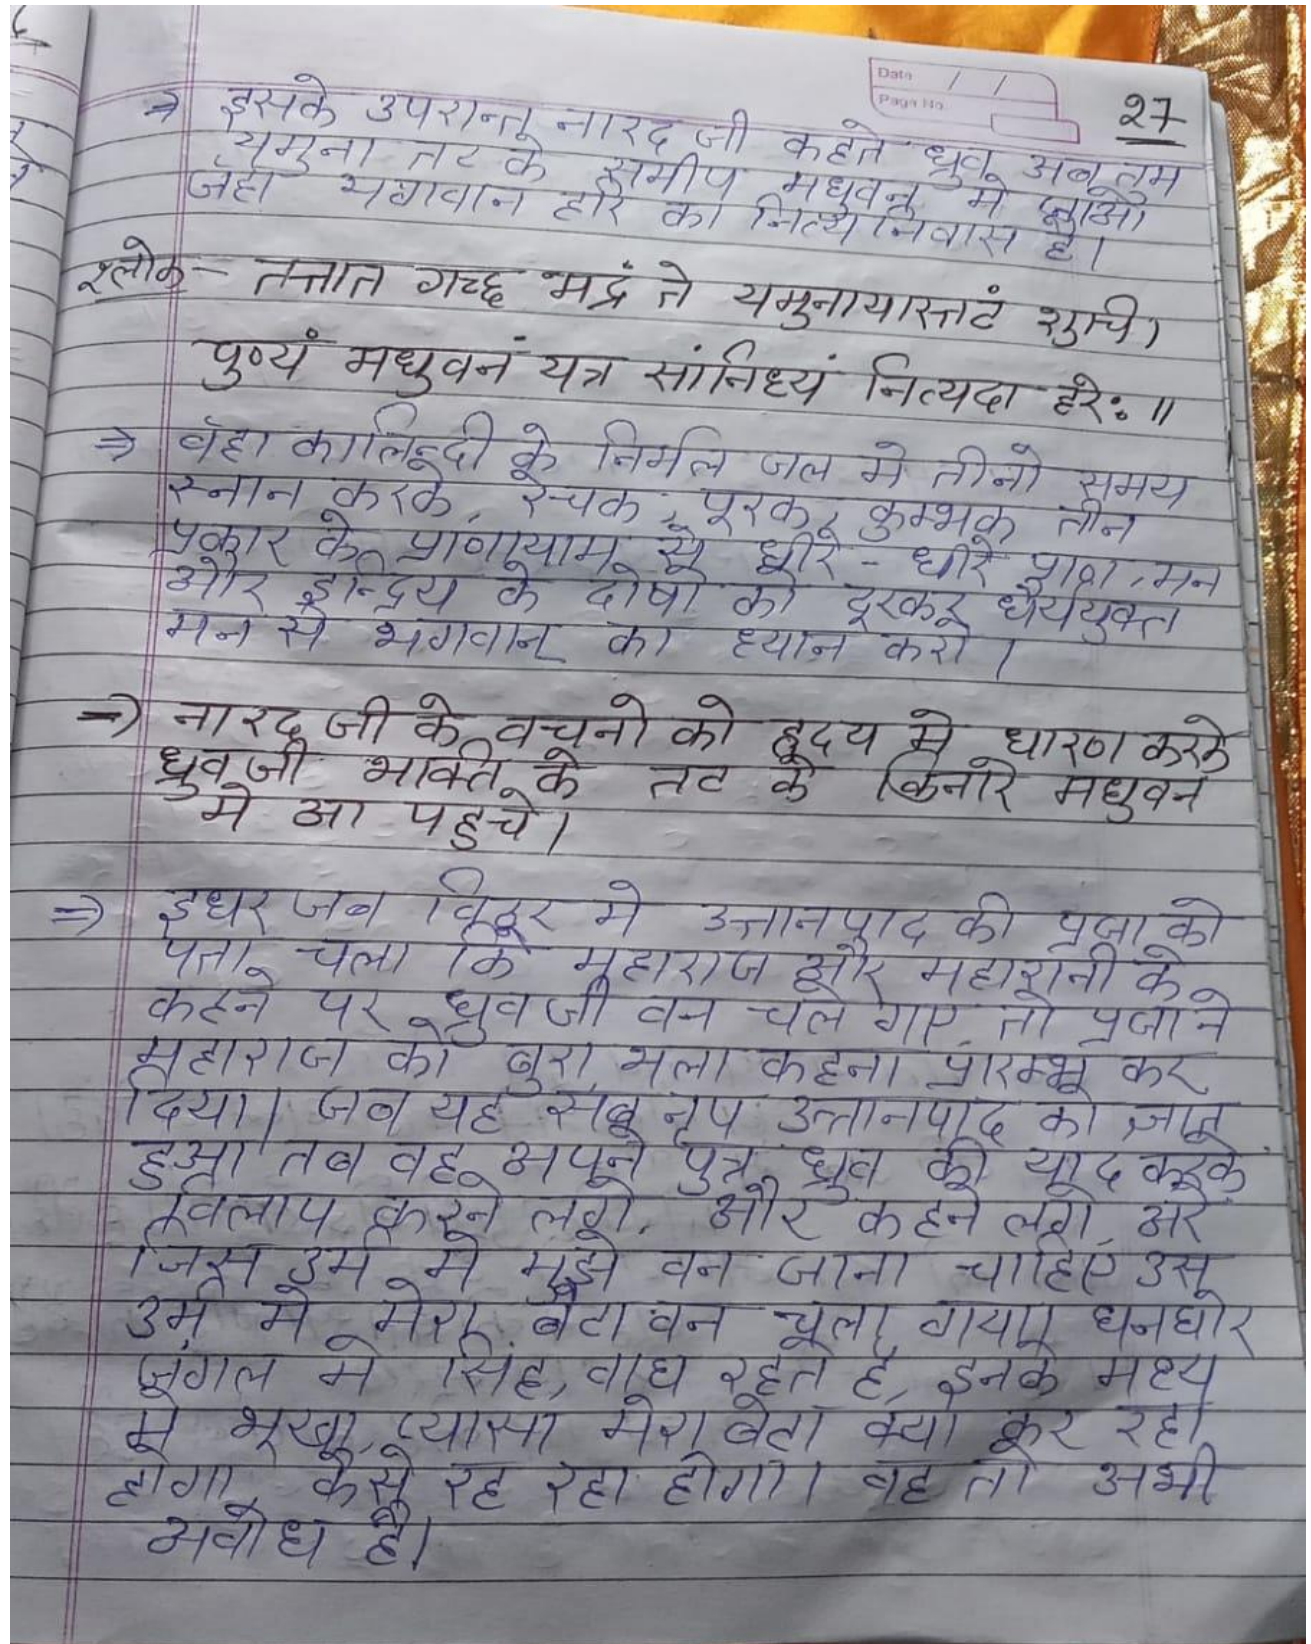 Date / /
Page No.
27
⇒ इसके उपरान्त नारद जी कहते ध्रुव अब तुम
यमुना तट के समीप मधुवन मे जाओ
जहा भगवान हरि का नित्य निवास है।
श्लोक - तत्तात गच्छ भद्रं ते यमुनायास्तटं शुचि।
पुण्यं मधुवनं यत्र सांनिध्यं नित्यदा हरेः ॥
⇒ वॅहा कालिन्दी के निर्मल जल मे तीनो समय
स्नान करके, रेचक, पूरक, कुम्भक तीन
प्रकार के प्राणायाम से धीरे - धीरे प्राण, मन
और इन्द्रिय के दोषो को दूरकर धैर्ययुक्त
मन से भगवान् का ध्यान करो।
⇒ नारद जी के वचनो को हृदय मे धारण करके
ध्रुव जी भक्ति के तट के किनारे मधुवन
मे आ पहुचे।
⇒ इधर जब विठूर मे उत्तानपाद की प्रजा को
पता चला कि महाराज और महारानी के
कहने पर ध्रुव जी वन चले गए तो प्रजा ने
महाराज को बुरा भला कहना प्रारम्भ कर
दिया। जब यह सब नृप उत्तानपाद को ज्ञात
हुआ तब वह अपने पुत्र ध्रुव की याद करके
विलाप करने लगे, और कहने लगे, अरे
जिस उम्र मे मुझे वन जाना चाहिए उस
उम्र मे मेरा बेटा वन चला गया। घनघोर
जंगल मे सिंह, वाघ रहते है, इनके मध्य
मे भूखा, प्यासा मेरा बेटा क्या कर रहा
होगा, कैसे रह रहा होगा। वह तो अभी
अवोध है।